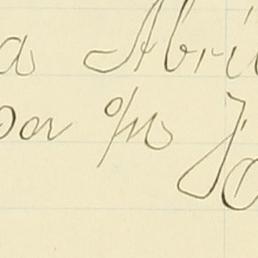 a Abri
por o/m Jo